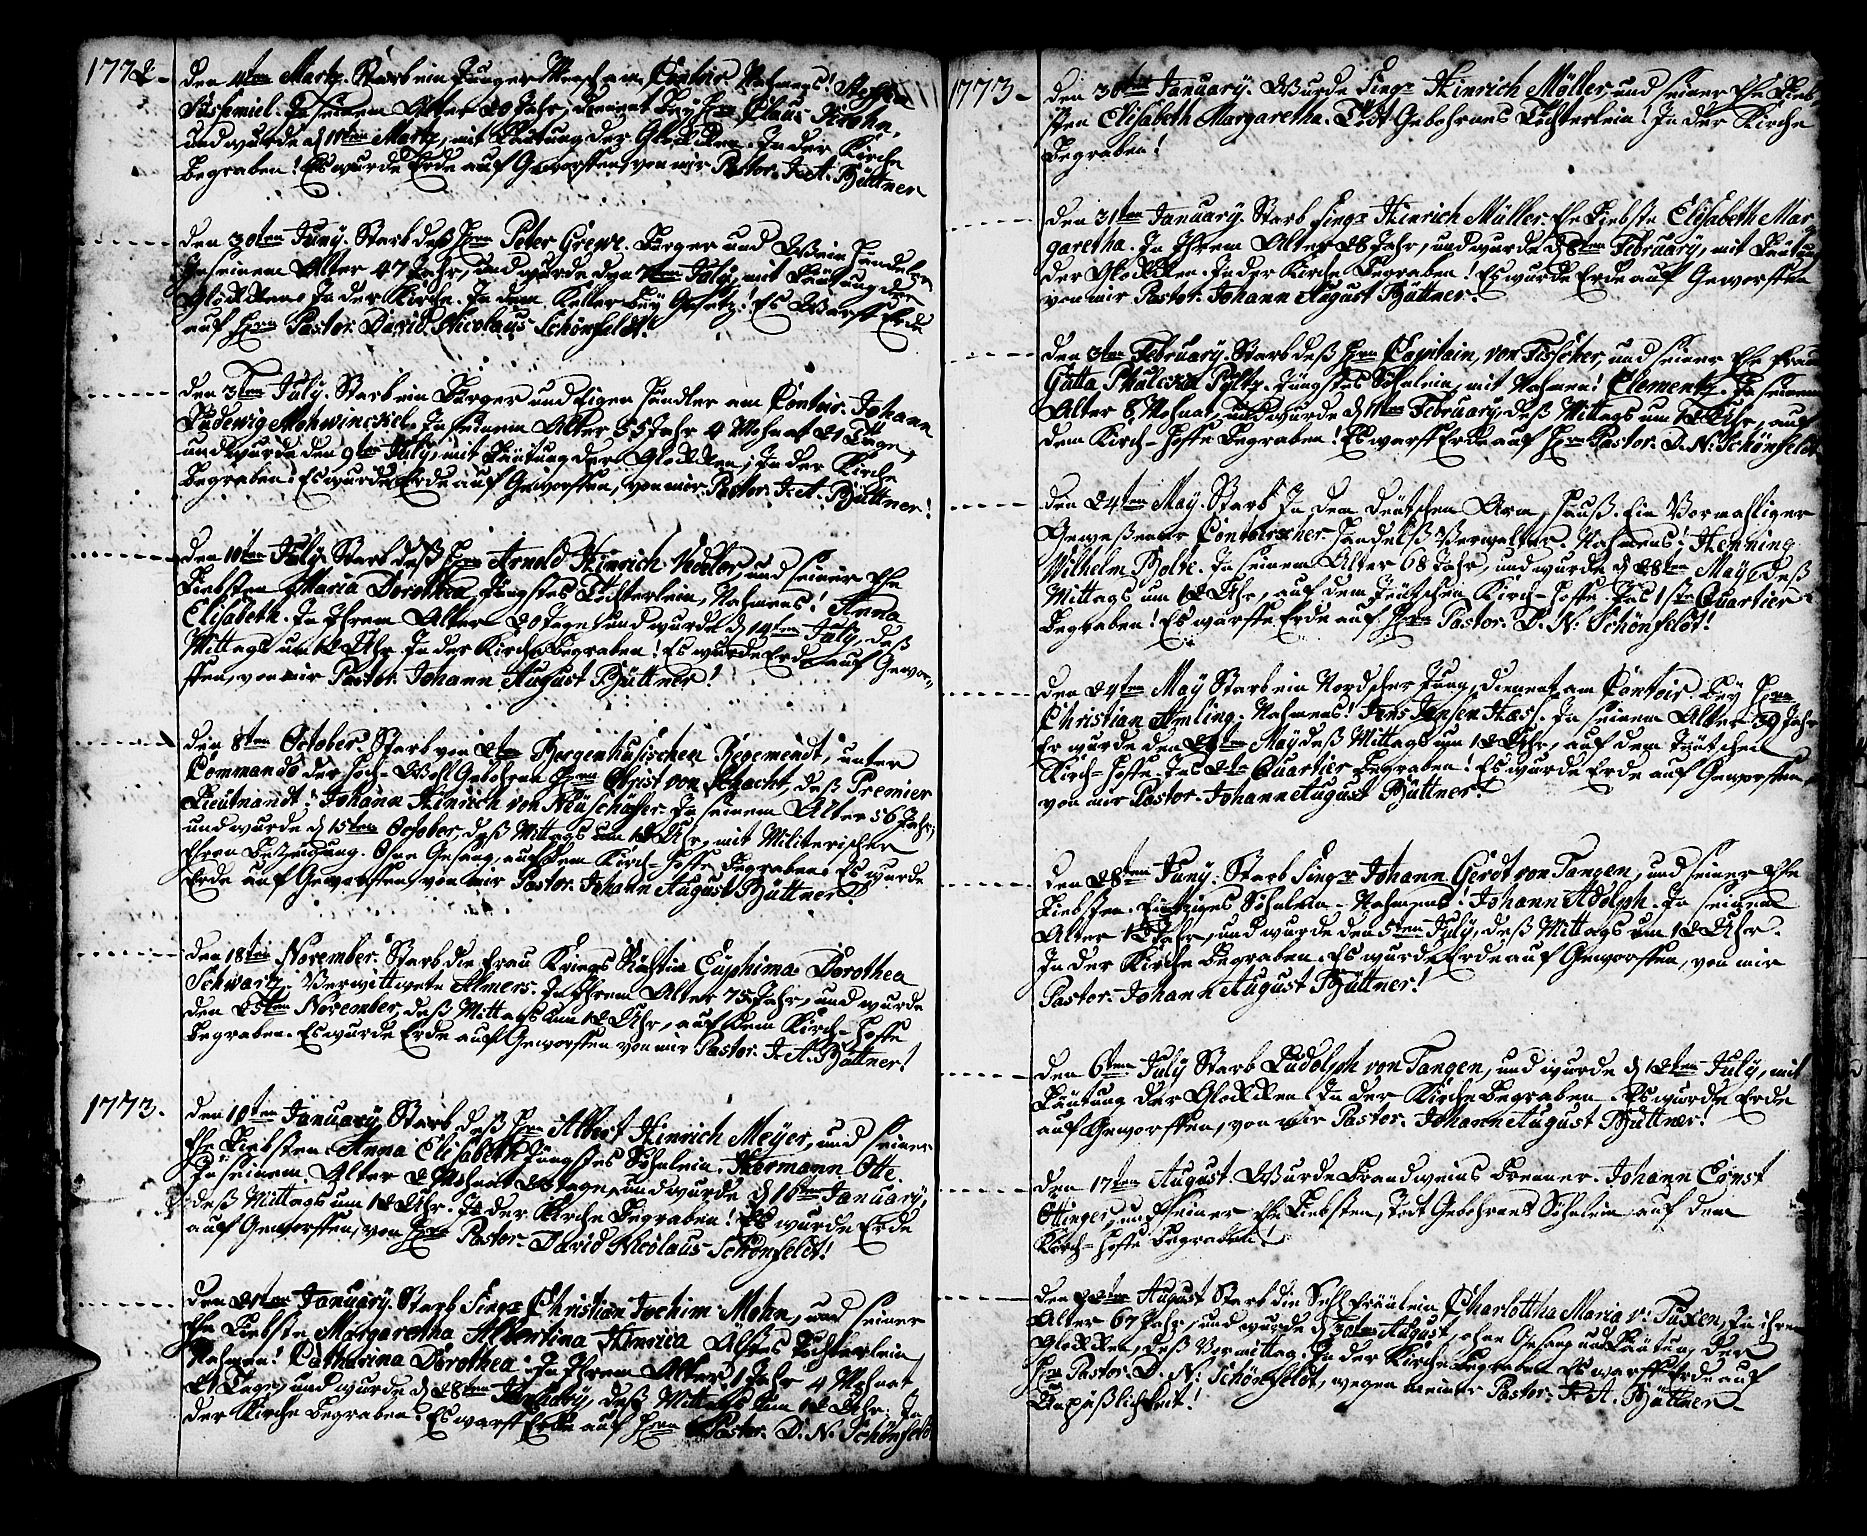 1772. den 4ten Martz. Starb ein Junger Mensch am Contoir, Nahmens! Steffen
Susemiel. In seinem Alter 20 Jahr, dienent bey Hrn Claus Krohn,
und wurde d 11ten Martz, mit Läutung der Glocken. In der Kirche
Begraben! Es wurde Erde auf Geworffen, von mir Pastor. J. A. Büttner
den 30ten Juny. Starb deß Hrn Peter Grewe. Bürger und Wein Händeler
In seinem Alter 47 Jahr, und wurde den 7ten July, mit Läutung der
Glocken. In der Kirche. In dem Keller bey Gesetz! Es Warff Erde
auf Hrn Pastor. David Nicolaus Schönfeldt!
den 3ten July. Starb ein Bürger und Eigen Händler am Contoir. Johann
Ludewig Mohwinckel. In seinem Alter 55 Jahr 4 Mohnat 21 Tage,
und wurde den 9ten July, mit Läutung der Glocken, In der Kirche
Begraben. Es wurde Erde auf Geworffen, von mir Pastor. J. A. Büttner!
den 10ten July. Starb deß Hrn Arnold Hinrich Vedeler, und seiner Ehe
Liebsten Maria Dorothea, Jüngstes Töchterlein, Nahmens! Anna
Elisabeth. In Ihrem Alter 20 Tage, und wurde d 14ten July, deß
Mittags um 12 Uhr. In der Kirche Begraben! Es wurde Erde auf Gewor-
ffen, von mir Pastor. Johann August Büttner!
den 8ten October. Starb von 2ten Bergenhusischen Regemendt, unter
Commando der Hoch-Wohl Gebohren Hrn Obrist von Schacht, deß Premier
Lieutnandt: Johann Hinrich von Neuschäfer. In seinem Alter 56 Jahr,
und wurde d 15ten October, deß Mittags um 12 Uhr, mit Militerischer
Ehren Bezeugung. Ohne Gesang, auf dem Kirch-Hoffe Begraben. Es wurde
Erde auf Geworffen von mir Pastor. Johann August Büttner!
den 18ten November. Starb die Frau Kriegs Räthin Euphima Dorothea
Schwartz. Verwittwete Almers. In Ihrem Alter 75 Jahr, und wurde
den 25ten November, deß Mittags um 12 Uhr, auf dem Kirch-Hoffe
Begraben. Es wurde Erde auf Geworffen von mir Pastor. J. A. Büttner!
1773. den 10ten January. Starb deß Hrn Albert Hinrich Meyer, und seiner
Ehe Liebsten Anna Elisabeth Jüngstes Söhnlein. Hermann Otte.
In seinem Alter 2 Mohnat Tage, und wurde d 16ten January,
deß Mittags um 12 Uhr. In der Kirche Begraben! Es wurde Erde
auf Geworffen, von Hrn Pastor. David Nicolaus Schönfeldt!
den 21ten January. Starb Singr Christian Jochim Mohn, und seiner
Ehe Liebste Margaretha Albertina Henrica Ältstes Töchterlein
Nahmen! Catharina Dorothea. In Ihrem Alter 1 Jahr 4 Mohnat
21 Tage, und wurde d 28ten January, deß Mittags um 12 Uhr. In
der Kirche Begraben! Es warff Erde auf Hrn Pastor. D. N. Schönfeldt
1773. den 30ten January. Wurde Singr Hinrich Möller, und seiner Ehe Lieb-
sten Elisabeth Margaretha. Todt Gebohrnes Töchterlein! In der Kirche
Begraben!
den 31ten January. Starb Singr Hinrich Müller, Ehe Liebste Elisabeth Mar
garetha. In Ihrem Alter 28 Jahr, und wurde d 8ten February, mit Läutung
der Glocken. In der Kirche Begraben! Es wurde Erde auf Geworffen
von mir Pastor. Johann August Büttner!
den 3ten February. Starb deß Hrn Capitain, von Fisscher, und seiner Ehe Frau
Gütta Pöltz. Jüngstes Söhnlein, mit Nahmen! Clementz. In seinem
Alter 8 Mohnat, und wurde d 11ten February, deß Mittags um 12 Uhr, auf
dem Kirch-Hoffe Begraben! Es warff Erde auf Hrn Pastor. D. N. Schönfeldt
den 24ten May. Starb In dem deutschen Arm Hauß. Ein Vormahliger
Geweßener Contoirscher Handelß Verwalter. Nahmens! Henning
Wilhelm Bolte. In seinem Alter 68 Jahr, und wurde d 28ten May, deß
Mittags um 12 Uhr, auf dem Teutschen Kirch-Hoffe. Ins 1ste Quartier
Begraben! Es warffe Erde auf. Hrn Pastor. D. N. Schönfeldt!
den 24ten May Starb ein Nordscher Jung, dienent am Contoir. Bey Hrn
Christian Amling. Nahmens! Jens Jensen Haes. In seinem Alter 39 Jahr
Er wurde den 28ten May deß Mittags um 12 Uhr, auf dem Teutschen
Kirch-Hoffe. Ins 2te Quartier Begraben! Es wurde Erde auf Geworffen,
von mir Pastor. Johann August Büttner!
den 28ten Juny. Starb Singr Johann Gerdt von Tangen, und seiner Ehe
Liebsten. Eintziges Söhnlein. Nahmens! Johann Adolph. In seinem
Alter 12 Jahr, und wurde den 5ten July, deß Mittags um 12 Uhr.
In der Kirche Begraben. Es wurde Erde auf Geworffen, von mir
Pastor. Johann August Büttner!
den 6ten July Starb Ludolph von Tangen, und wurde d 12ten July, mit
Läutung der Glocken In der Kirche Begraben. Es wurde Erde
auf Geworffen, von mir Pastor. Johann August Büttner!
den 17ten August. Wurde Brandweins Brenner. Johann Ernst
Ottinger, und seiner Ehe Liebsten, Todt Gebohrnes Söhnlein auf dem
Kirch-Hoffe Begraben!
den 22ten August Starb die Sehl. Fräulein Charlottha Maria v: Tuxen, In ihrem
Alter 67 Jahr, und wurde d 30ten August, ohne Gesang und Läutung der
Glocken, deß Vormittag. In der Kirche Begraben. Es warff Erde auf
Hrn Pastor. D. N. Schönfeldt, wegen meiner Pastor. J. A. Büttner
Unpäßlichkeit!